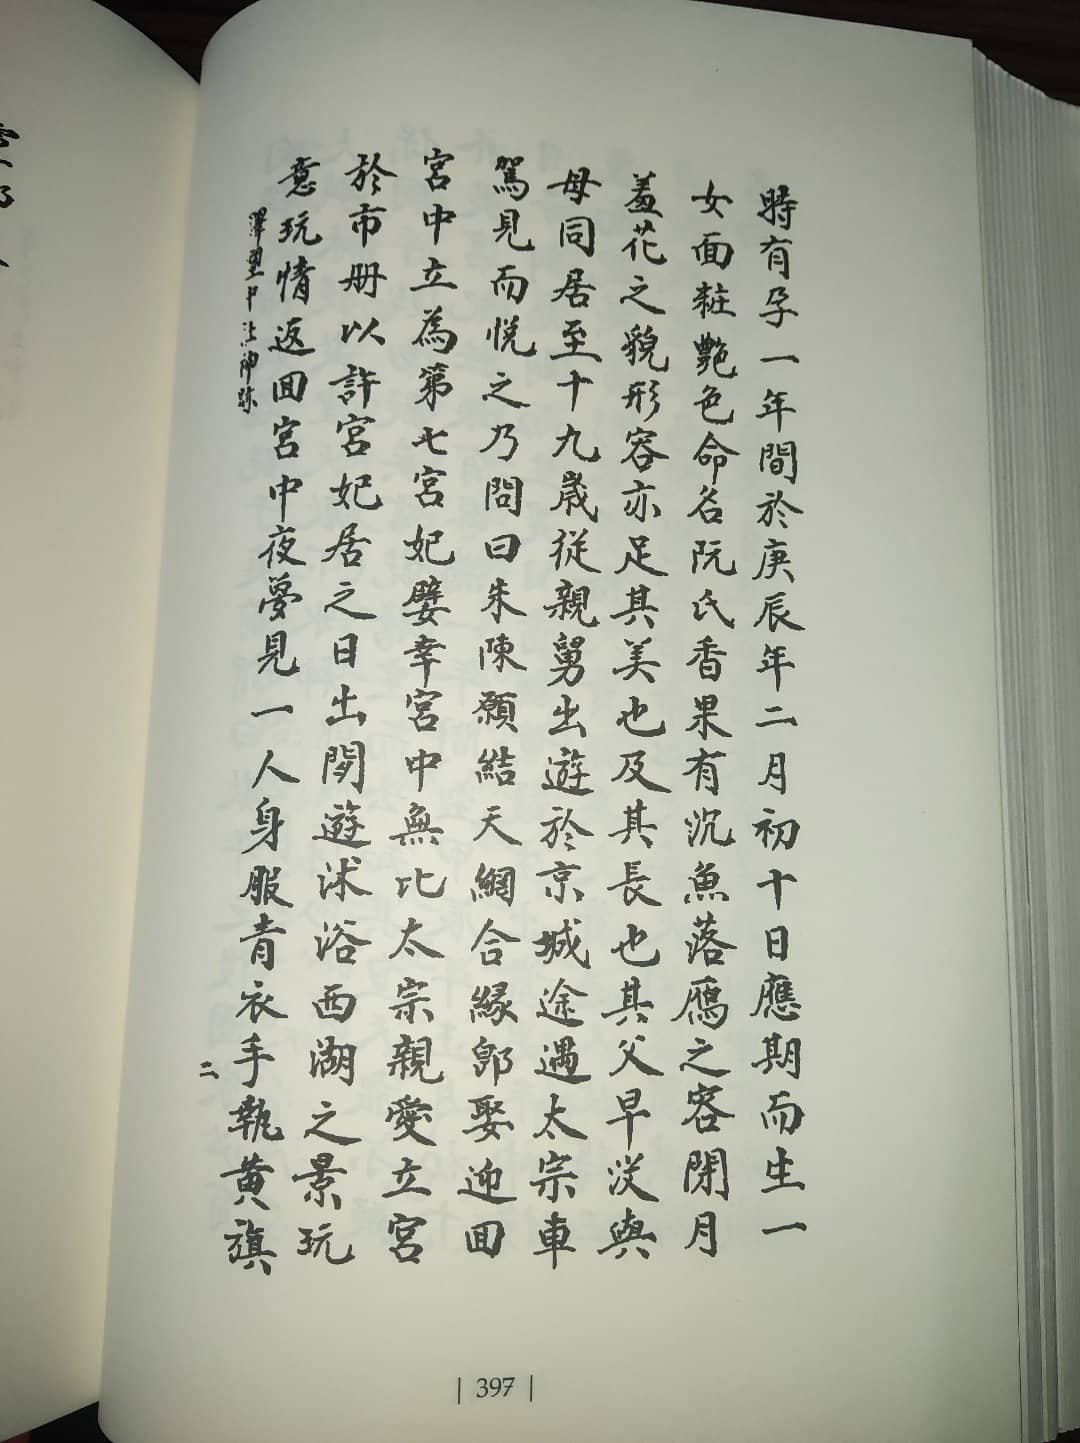 時有孕一年間於庚辰年二月初十日應期而生一
女面粧艷色命名阮氏香果有沉魚落鴈之容閉月
羞花之貌形容亦足其美也及其長也其父早沒與
母同居至十九歲從親舅出遊於京城途遇太宗車
駕見而悅之乃問曰朱陳願結天網合緣郎娶迎回
宮中立為第七宮妃嬖幸宮中無比太宗親愛立宮
於市册以許宮妃居之日出閱遊沭浴西湖之景玩
意玩情返回宮中夜夢見一人身服青衣手執黃旗
二
| 397 |